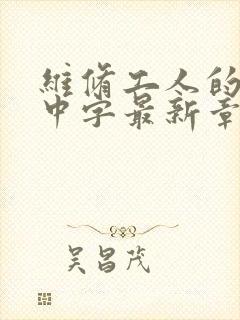 維修工人的
中字最新章
吴昌茂